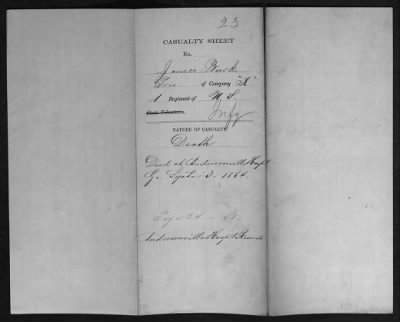 23
CASUALTY SHEET
No.
James
of Company "K"
1 Regiment of U S
State Volunteers. Infy
NATURE OF CASUALTY.
Death
Died at Andersonville Hospl
Ga Septr 3. 1864.
Andersonville Hospl Records